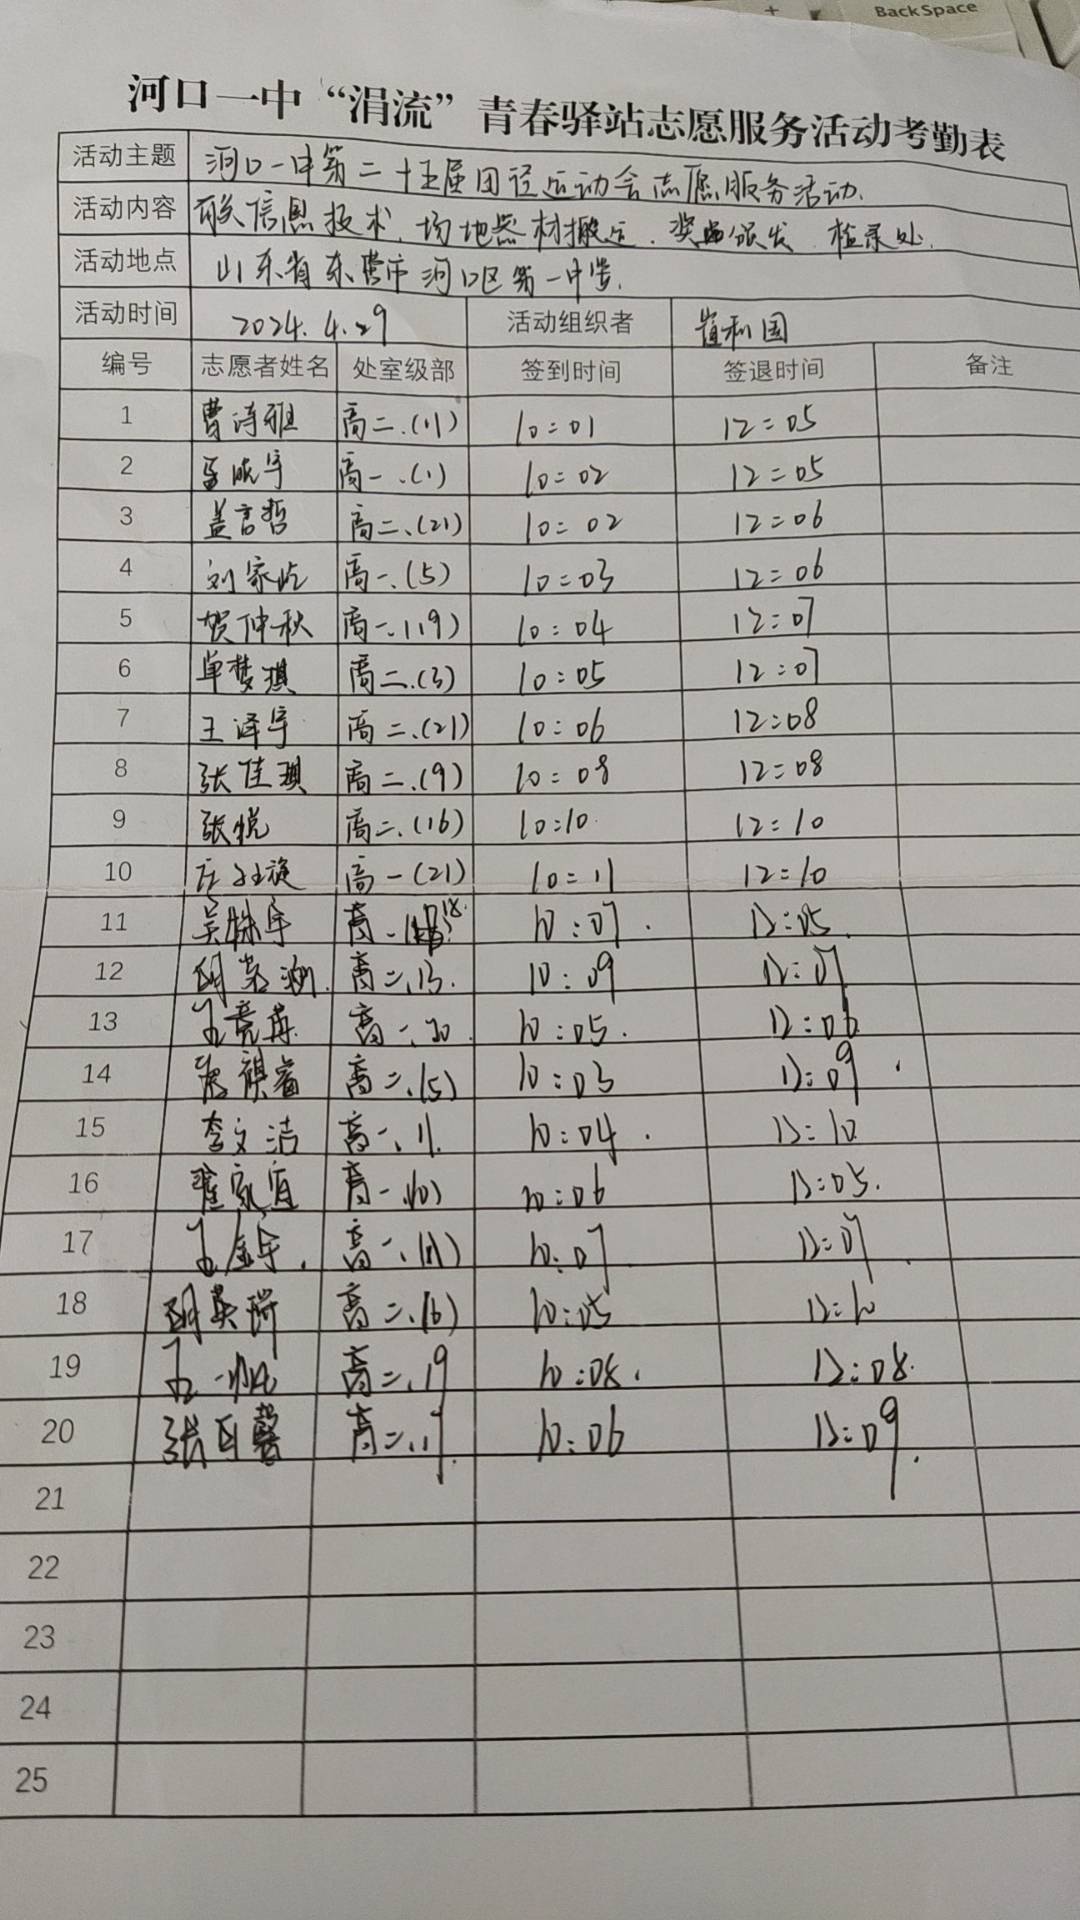 BackSpace
河口一中“涓流”青春驿站志愿服务活动考勤表
活动主题 河口一中第二十五届田径运动会志愿服务活动.
活动内容 信息技术、场地器材搬运、奖品颁发、检录处.
活动地点 山东省东营市河口区第一中学.
活动时间 2024.4.29 活动组织者 崔利国
编号 志愿者姓名 处室级部 签到时间 签退时间 备注
1 曹诗雅 高二.(11) 10:01 12:05
2 孟晓宇 高一.(1) 10:02 12:05
3 盖言哲 高二、(21) 10:02 12:06
4 刘家屹 高一、(5) 10:03 12:06
5 贺仲秋 高一、(19) 10:04 12:07
6 单梦琪 高二.(3) 10:05 12:07
7 王泽宇 高二、(21) 10:06 12:08
8 张佳琪 高二.(9) 10:08 12:08
9 张悦 高二、(16) 10:10 12:10
10 高一(21) 10:11 12:10
11 吴 宇 高一 18. 10:07. 12:05.
12 胡 高二、13. 10:09 12:07
13 王 高一、20 10:05. 12:06
14 祺睿 高二、(5) 10:03 12:09.
15 李文洁 高二、11. 10:04. 12:10
16 崔家宜 高一、(10) 10:06 12:05.
17 王金宇. 高二、(11) 10:07 12:07.
18 胡英瑞 高二、(6) 10:05 12:10
19 王一帆 高二、19 10:08. 12:08.
20 张 馨 高二、17. 10:06 12:09.
21
22
23
24
25